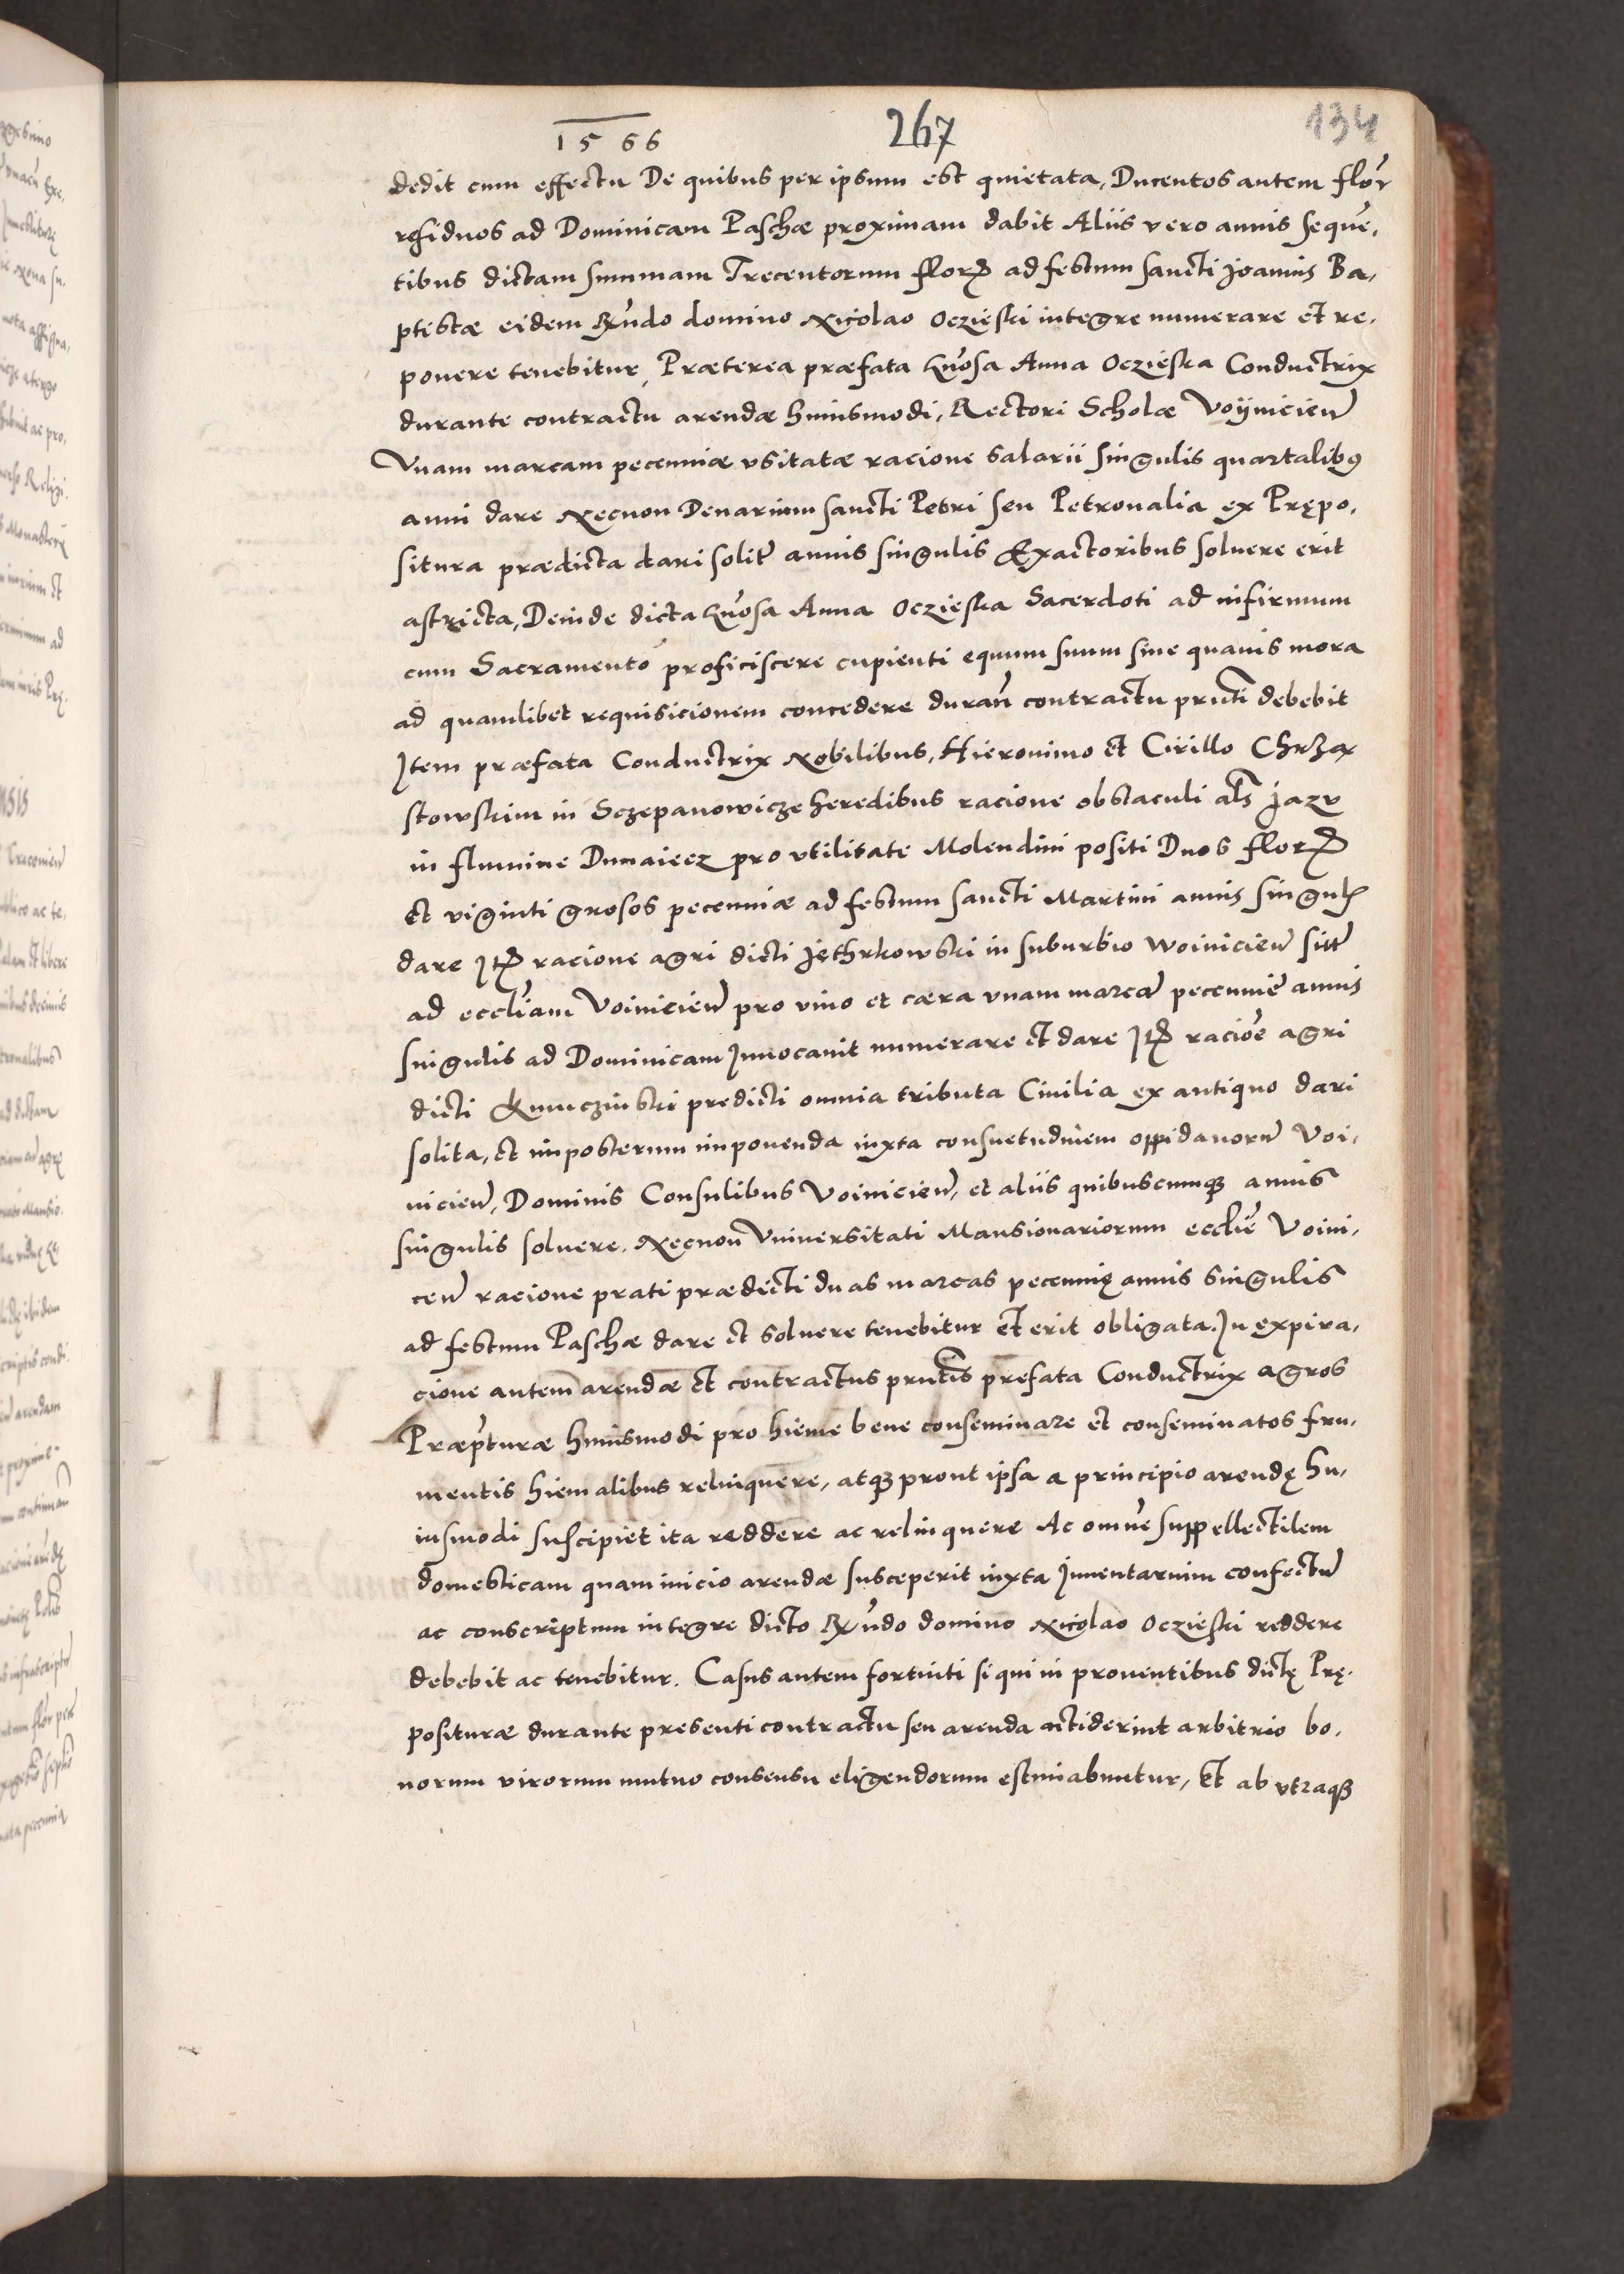 1566 267 134
dedit cum effectu De quibus per ipsum est quietata, Ducentos autem flor
residuos ad Dominicam Paschæ proximam dabit Aliis vero annis sequē,
tibus dictam summam Trecentorum flor ad festum sancti Joannis Ba,
ptistæ eidem Rndo domino Nicolao Oczieski integre numerare et re,
ponere tenebitur, Præterea præfata Gnosa Anna Oczieska Conductrix
durante contractu arendæ huiusmodi, Rectori Scholæ Voijnicień
Vnam marcam pecenniæ vsitatæ racione salarii singulis quartalibus
anni dare Necnon Denarium sancti Petri seu Petronalia ex Prępo,
situra prædicta dari solit annis singulis Exactoribus soluere erit
astricta, Deinde dicta Gnosa Anna Oczieska Sacerdoti ad infirmum
cum Sacramento proficiscere cupienti equum suum sine quauis mora
ad quamlibet requisicionem concedere durañ contractu pñti debebit
Item præfata Conductrix Nobilibus, Hieronimo et Cirillo Chrząx
stowskim in Sczepanowicze heredibus racione obstaculi als Jazv
in flumine Dunaiecz pro vtilitate Molendini positi Duos flor
et viginti grosos pecenniæ ad festum sancti Martini annis singul
dare It racione agri dicti Jethrkowski in suburbio Woinicień sitt
ad eccliam Voinicień pro vino et cæra vnam marcā pecennie annis
singulis ad Dominicam Inuocauit numerare et dare It racioe agri
dicti Knuczinski predicti omnia tributa Ciuilia ex antiquo dari
solita, et imposterum imponenda iuxta consuetudinem oppidanorū Voi,
nicień, Dominis Consulibus Voinicień, et aliis quibuscumq annis
singulis soluere. Necnon Vniuersitati Mansionariorum ecclie Voini,
ceń racione prati prædicti duas marcas pecennię annis singulis
ad festum Paschæ dare et soluere tenebitur et erit obligata. In expira,
cione autem arendæ et contractus pñtis prefata Conductrix agros
Præpturæ huiusmodi pro hieme bene conseminare et conseminatos fru,
mentis hiemalibus relinquere, atq prout ipsa a principio arendę hu,
iusmodi suscipiet ita reddere ac relinquere Ac omnē suppellectilem
domesticam quam inicio arendæ susceperit iuxta Inuentarium confectū
ac conscriptum integre dicto Rndo domino Nicolao Oczieski reddere
debebit ac tenebitur. Casus autem fortuiti si qui in prouentibus dictę Prę,
posituræ durante presenti contractu seu arenda acciderint arbitrio bo,
norum virorum mutuo consensu eligendorum estimabuntur, Et ab vtraq